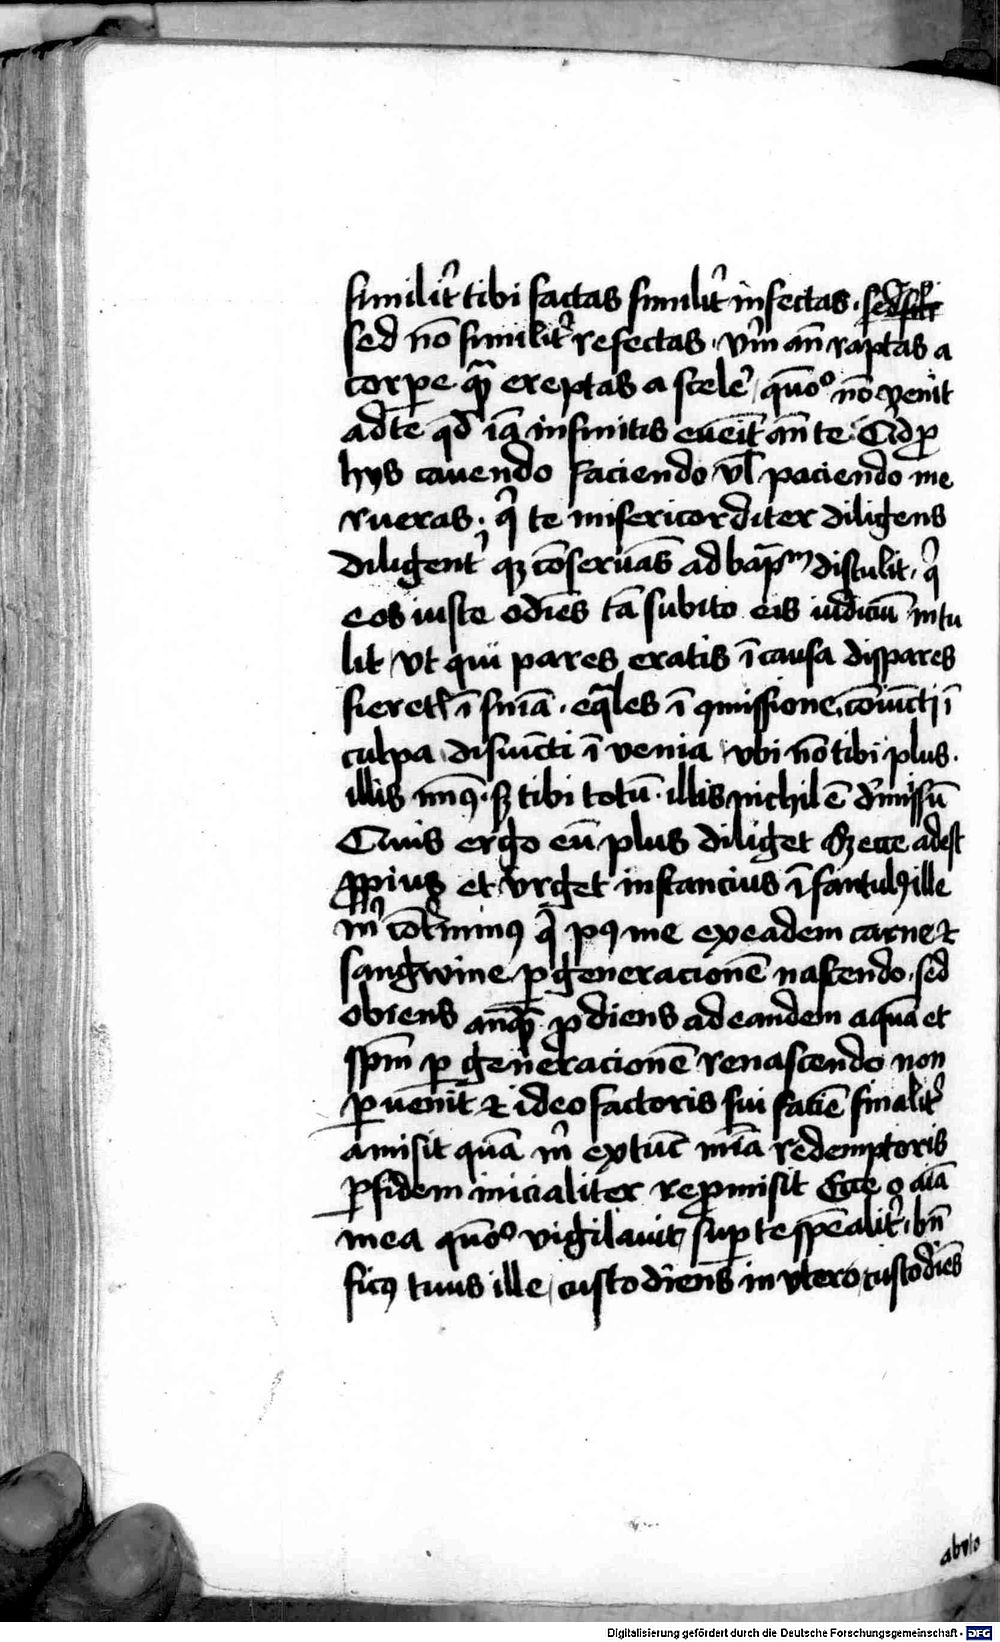 similit᷑ tibi factas similit᷑ infectas . sed silr
sed nō similit᷑ refectas . vim an̄ raptas a
corꝑe q̄ꝫ ereptas a scele᷑ / quō° nō ꝯuenit
ad te qd̄ iā infinitis euēit an̄ te Qͥd ꝓ
hijs cauendo faciendo vl̄ paciendo me
rueras . qͥ te misericorditer diligens
diligent᷑ qꝫ cōseruās ad bapᵐ distulit . qͥ
eos iuste odiēs tā subito eis iudiciū intu
lit / vt qui pares eratis ī causa dispares
fieret᷑ ī sn̄ia . eq̄les ī ꝯmissione cōiūcti ī
culpa disiūcti ī venia vbi nō tibi plus .
illis minꝰ . sꝫ tibi totū . illis nichil ē dimissū
Cuius ergo eū plus diliget Sꝫ ecce adest
ꝓpius et vrget instancius īfantulꝰ ille
m̄ cōt᷑minꝰ q̄ pꝰ me ex eadem carne ⁊
sangwine ꝑ generacionē nascendo . sed
obiens anq̄ꝫ ꝓdiens ad eandem aquā et
sp̄m ꝑ generacionē renascendo non
ꝑuēit ⁊ ideo factoris sui faciē finalit᷑
amisit quā m̄ extūc mīa redemptoris
ꝑ fidem inicialiter reꝓmisit Ecce o aīa
mea quō° vigilauit suꝑ te spēalit᷑ . bn̄
ficꝰ tuus ille / custodiens in vtero / custodiēs
ab vto
Digitalisierung gefördert durch die Deutsche Forschungsgemeinschaft - DFG